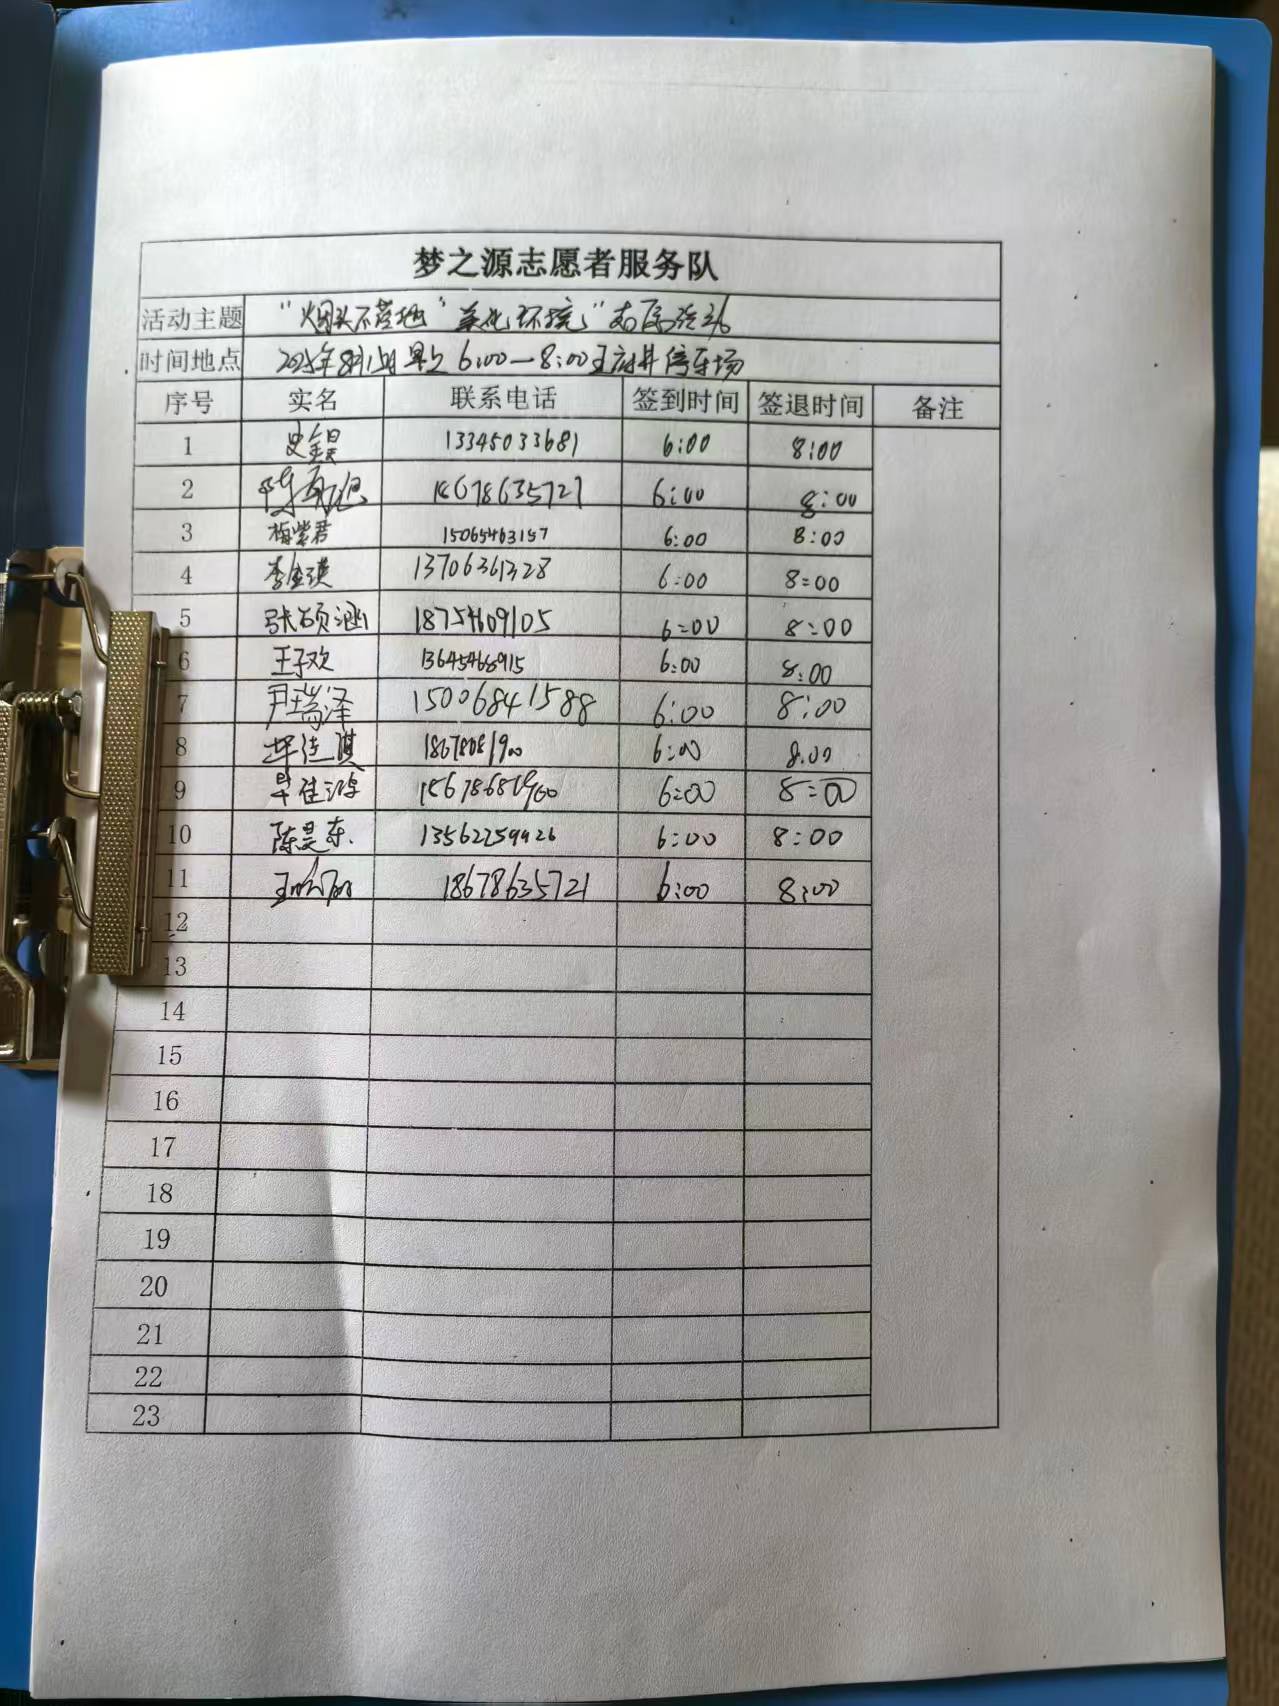 梦之源志愿者服务队
活动主题 "烟头不落地" 美化环境"志愿活动
时间地点 2025年8月 早上 6:00—8:00 王府井停车场
序号 实名 联系电话 签到时间 签退时间 备注
1 史锟 13345033681 6:00 8:00
2 18678635721 6:00 8:00
3 梅紫君 15065463157 6:00 8:00
4 李金祺 13706361328 6:00 8:00
5 张硕涵 18754609105 6:00 8:00
6 王子欢 13645468915 6:00 8:00
7 尹瑞泽 15006841588 6:00 8:00
8 6:00 8.00
9 6:00 8:00
10 陈昊东 13562259926 6:00 8:00
11 18678635721 6:00 8:00
12
13
14
15
16
17
18
19
20
21
22
23